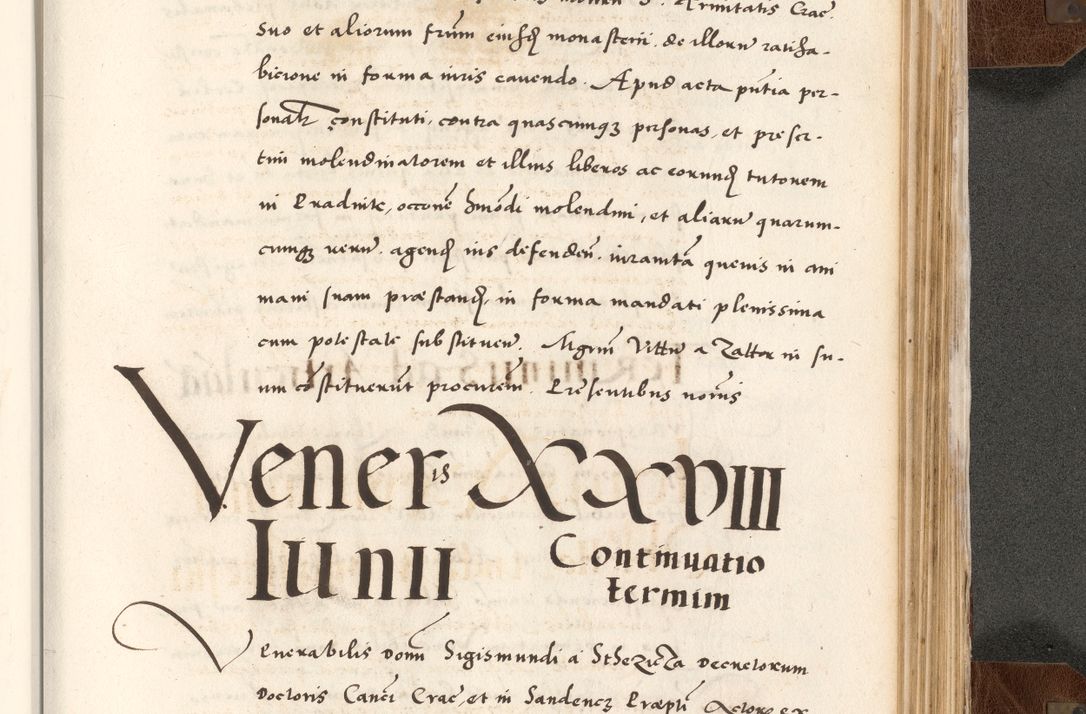 Trinitatis Crac̃.
suo et aliorum frũm eiusdꝫ monasterii, de illorũ ratiha-
bicione in forma iuris cavendo. Apud acta pñtia per-
sonalr̃ constituti, contra quascumqꝫ personas, et preser-
tim molendinatorem et illius liberos ac eorundꝫ tutorem
in Pradnik, occoñe hmõdi molendini, et aliarũ quarum-
cumqꝫ rerũ, agendꝫ ius defendeñ. iuramtã quevis in ani
mam suam præstandꝫ, in forma mandati plenissima
cum potestate substituen̄. Mgrm̃ Vittũ a Zattor in su-
um cõstituerũt procurem̃. Presentibus norĩs
Veneris XXVIII
Iunii Continuatio
termini
Venerabilis domĩ Sigismundi a Sthezicza decretorum
doctoris Canci Crac̃, et in Sandencꝫ Præpti Actore ex